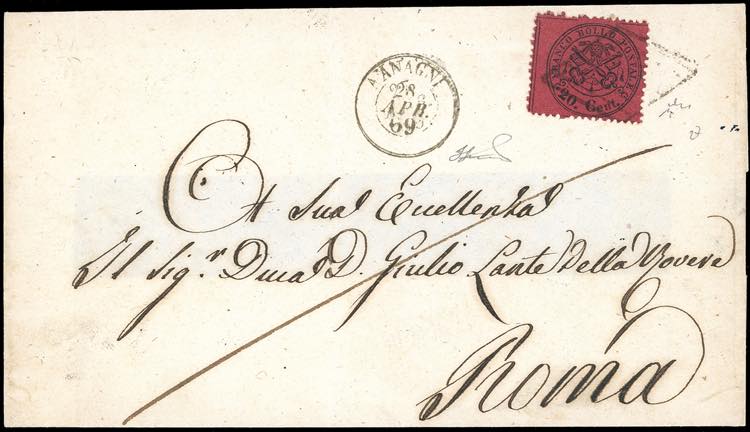 FRANCO BOLLO PONTIFICIO
20 Cent.
ANAGNI
28
APR.
69
A Sua Eccellenza
Il Sig.r Duca D. Giulio Lante Della Rovere
Roma